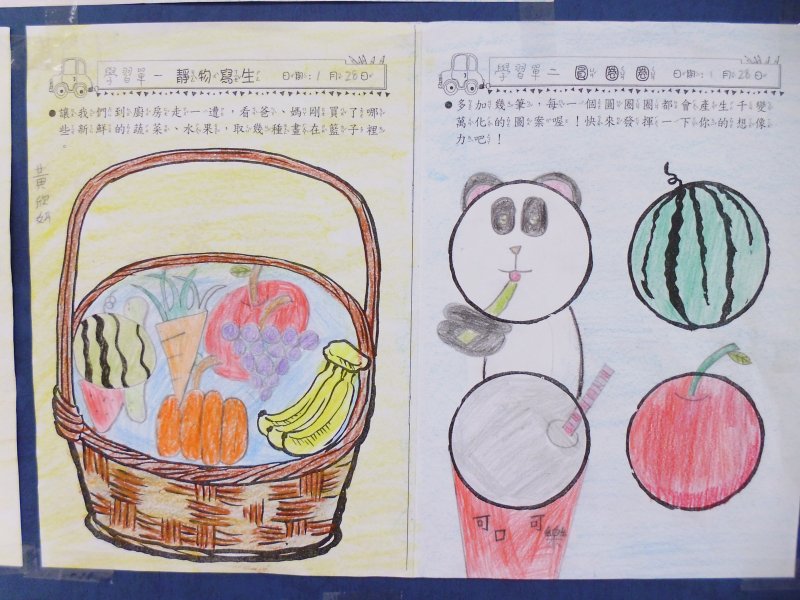 學習單一 靜物寫生 日期:1月28日
●讓我們到廚房走一遭，看爸、媽剛買了哪
些新鮮的蔬菜、水果，取幾種畫在籃子裡
。
黃
學習單二 圓圈圈 日期:1月28日
●多加幾筆，每一個圓圈圈都會產生千變
萬化的圖案喔！快來發揮一下你的想像
力吧！
可口可樂